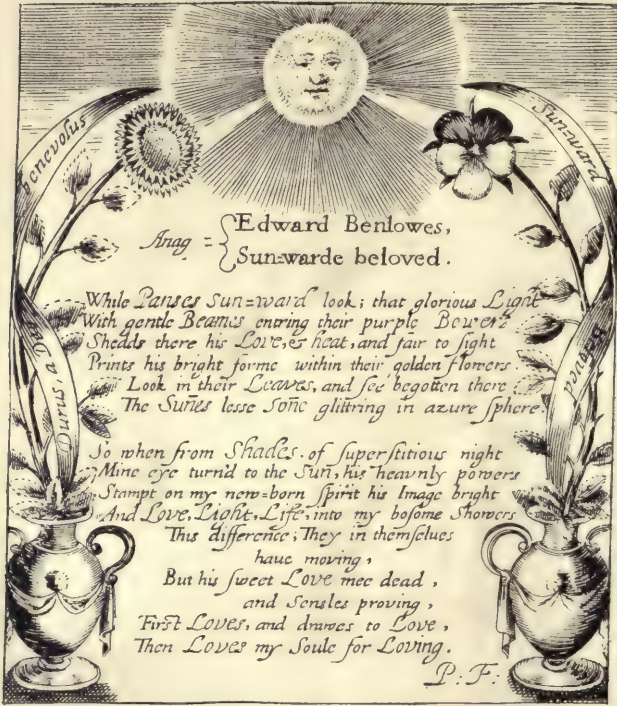 benevolus
Sun=ward
Anag = Edward Benlowes,
Sun=warde beloved.
While Panses Sun=ward look; that glorious Light
With gentle Beames entring their purple Bowers
Shedds there his Love, & heat, and fair to sight
Prints his bright forme within their golden flowers.
Look in their Leaves, and see begotten there
The Sunnes lesse Sonne glittring in azure sphere.
So when from Shades of superstitious night
Mine eye turn'd to the Sun, his heavnly powers
Stampt on my new=born spirit his Image bright
And Love, Light, Life, into my bosome Showers
This difference; They in themselues
haue moving,
But his sweet Love mee dead,
and Sensles proving,
First Loves, and drawes to Love,
Then Loves my Soule for Loving.
P: F:
Durus, a Deo
Beloved